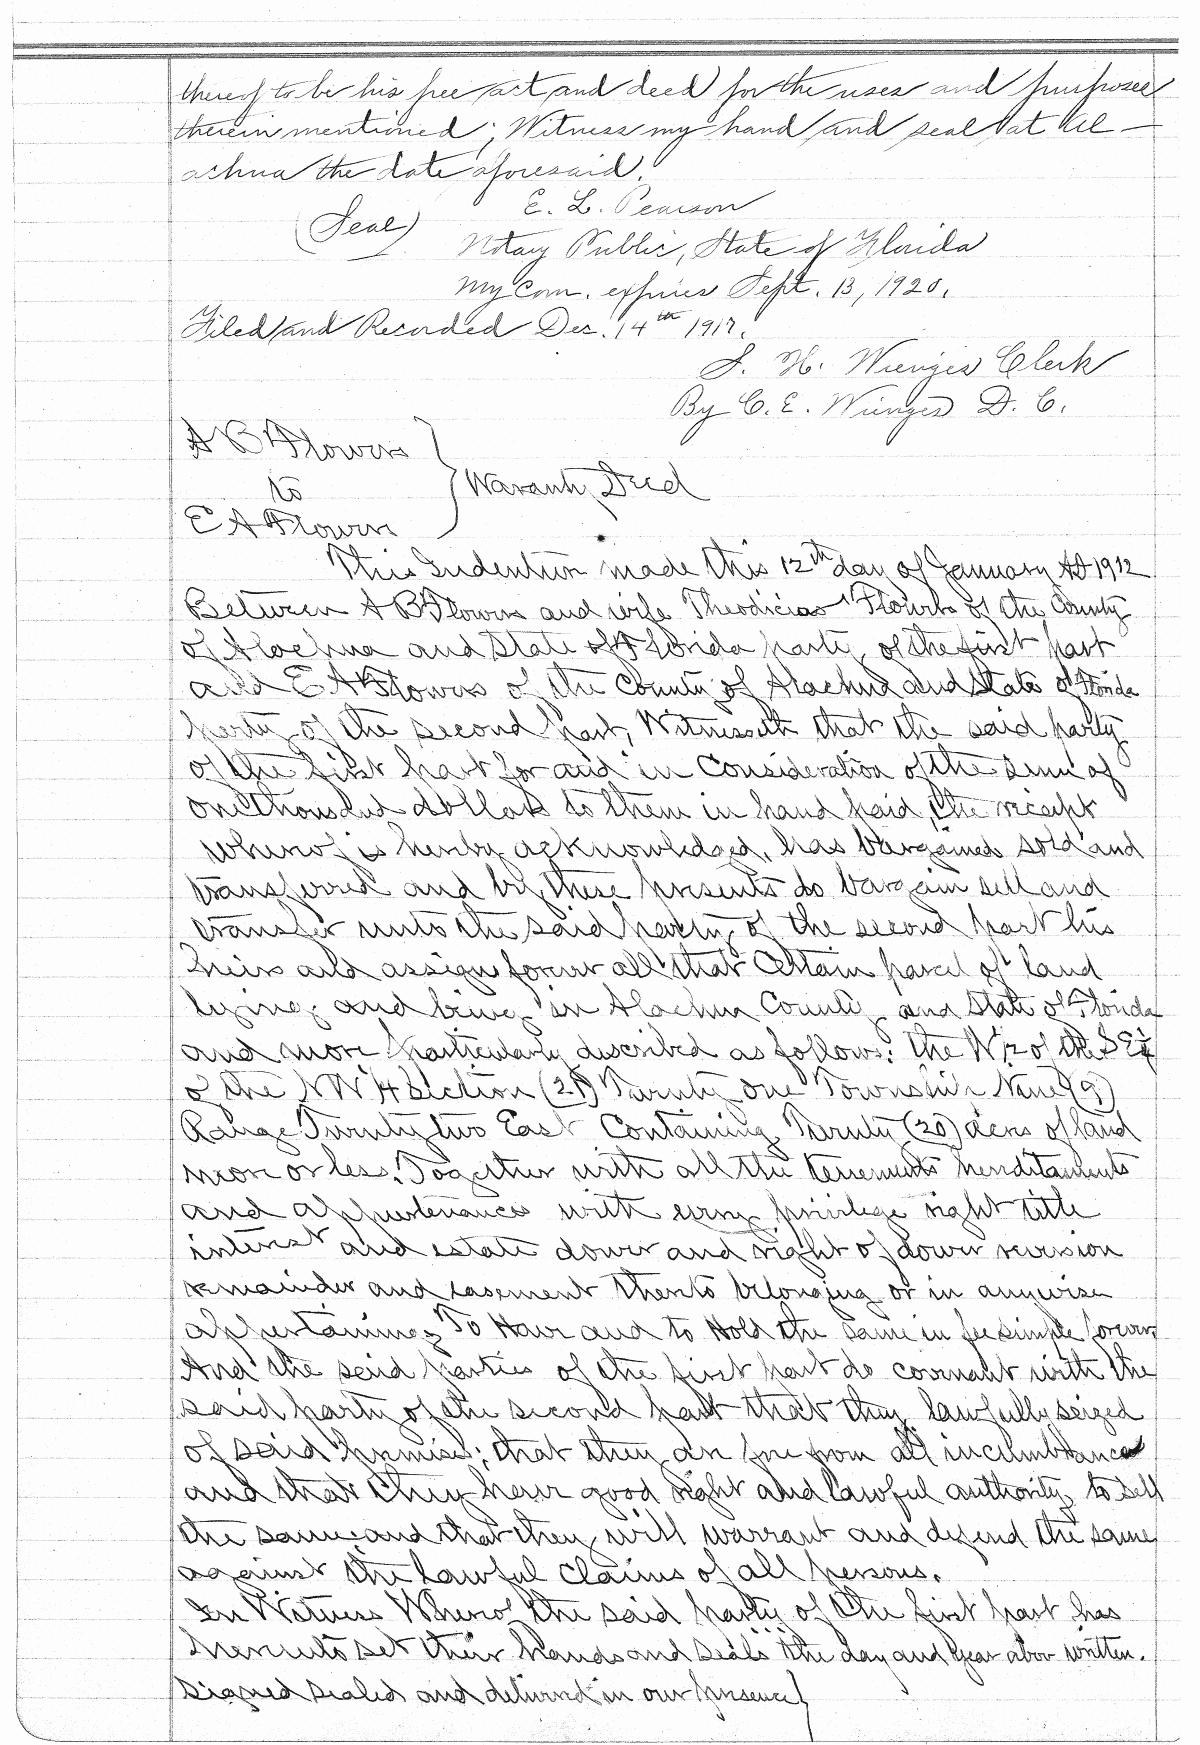 thereof to be his free act and deed for the uses and purposes
therein mentioned; Witness my hand and seal at Al—
achua the date aforesaid.
E. L. Pearson
(Seal)
Notary Public, State of Florida
My Com. expires Sept. 13, 1920.
Filed and Recorded Dec. 14th 1917.
S. H. Wienges Clerk
By C. E. Wienges D. C.
A B Flowers
to
Waranty Deed
E A Flowers
This Indenture made this 12th day of January AD 1912
Between A B Flowers and wife Flowers of the County
of Alachua and State of Florida party of the first part
and E A Flowers of the County of Alachua and State of Florida
party of the second part, Witnesseth that the said party
of the first part for and in Consideration of the sum of
one thousand dollars to them in hand paid, the receipt
whereof is hereby acknowledged, has bargained sold and
transferred and by these presents do bargain sell and
transfer unto the said party of the second part his
heirs and assigns forever all that Certain parcel of land
lying and being in Alachua County and State of Florida
and more particularly described as follows: The W 1/2 of the S E 1/4
of the N W 1/4 Section (21) Twenty one Township Nine (9)
Range Twenty two East Containing Twenty (20) acres of land
more or less. Together with all the tenements hereditaments
and appurtenances with every privilege right title
interest and estate dower and right of dower reversion
remainder and easement thereto belonging or in anywise
appertaining To Have and to Hold the same in fee simple forever
And the said parties of the first part do covenant with the
said party of the second part that they lawfully seized
of said premises; that they are free from all incumbrances
and that they have good right and lawful authority to sell
the same and that they will warrant and defend the same
against the lawful claims of all persons.
In Witness Whereof the said party of the first part has
hereunto set their hands and seals the day and year above written.
Signed sealed and delivered in our presence